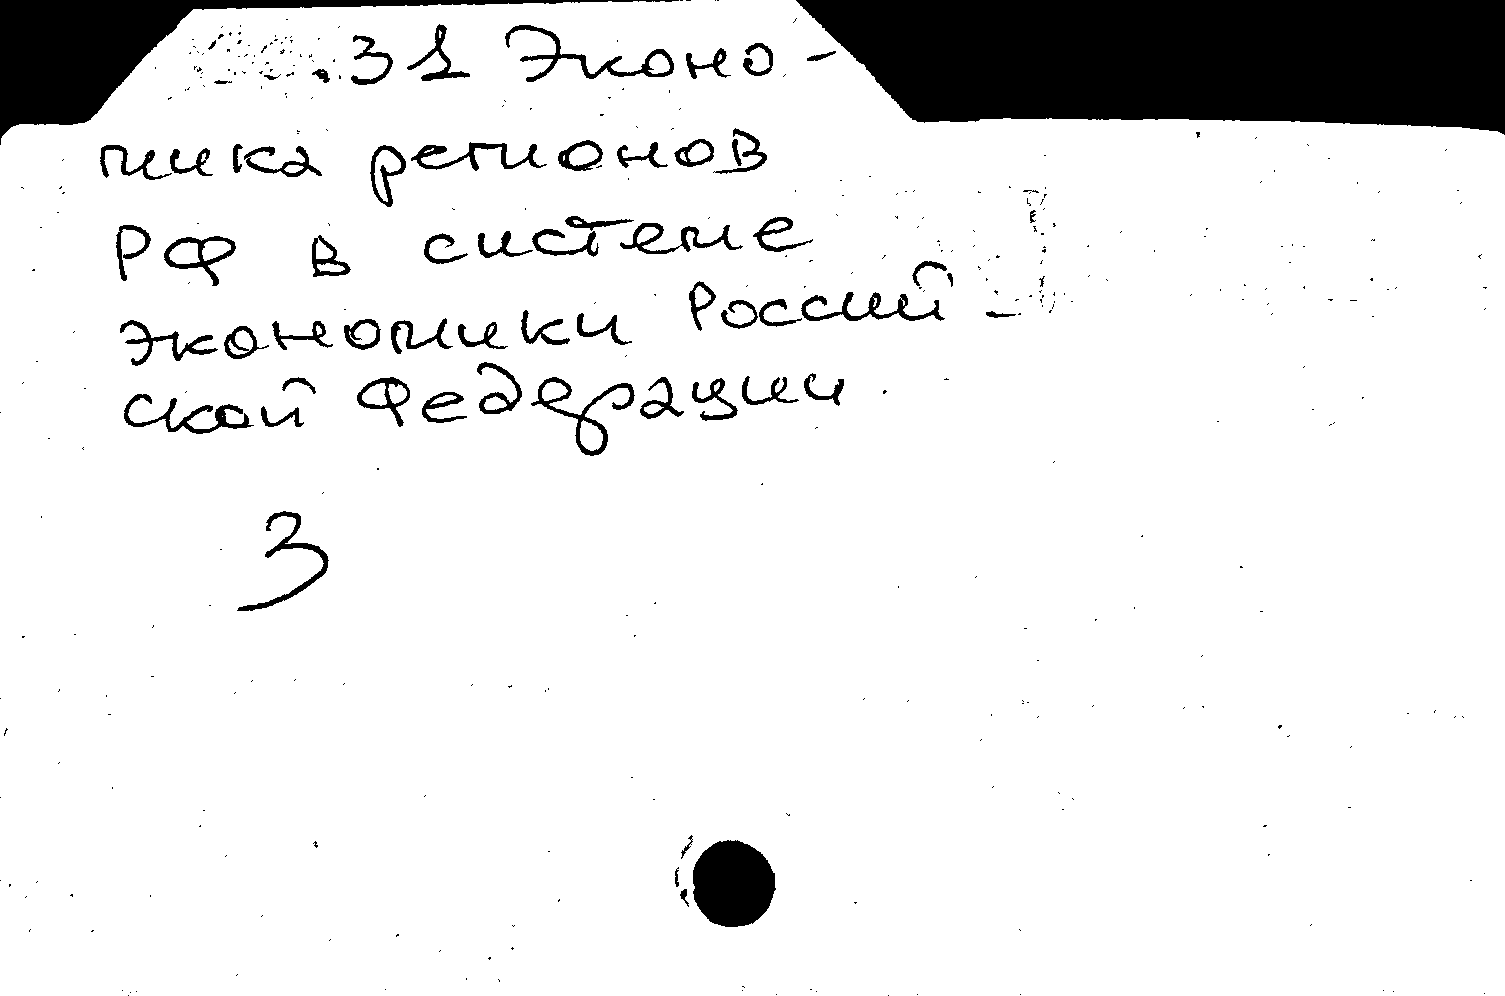 .31 Эконо-
мика регионов
РФ в системе
экономики Россий-
ской Федерации.
3